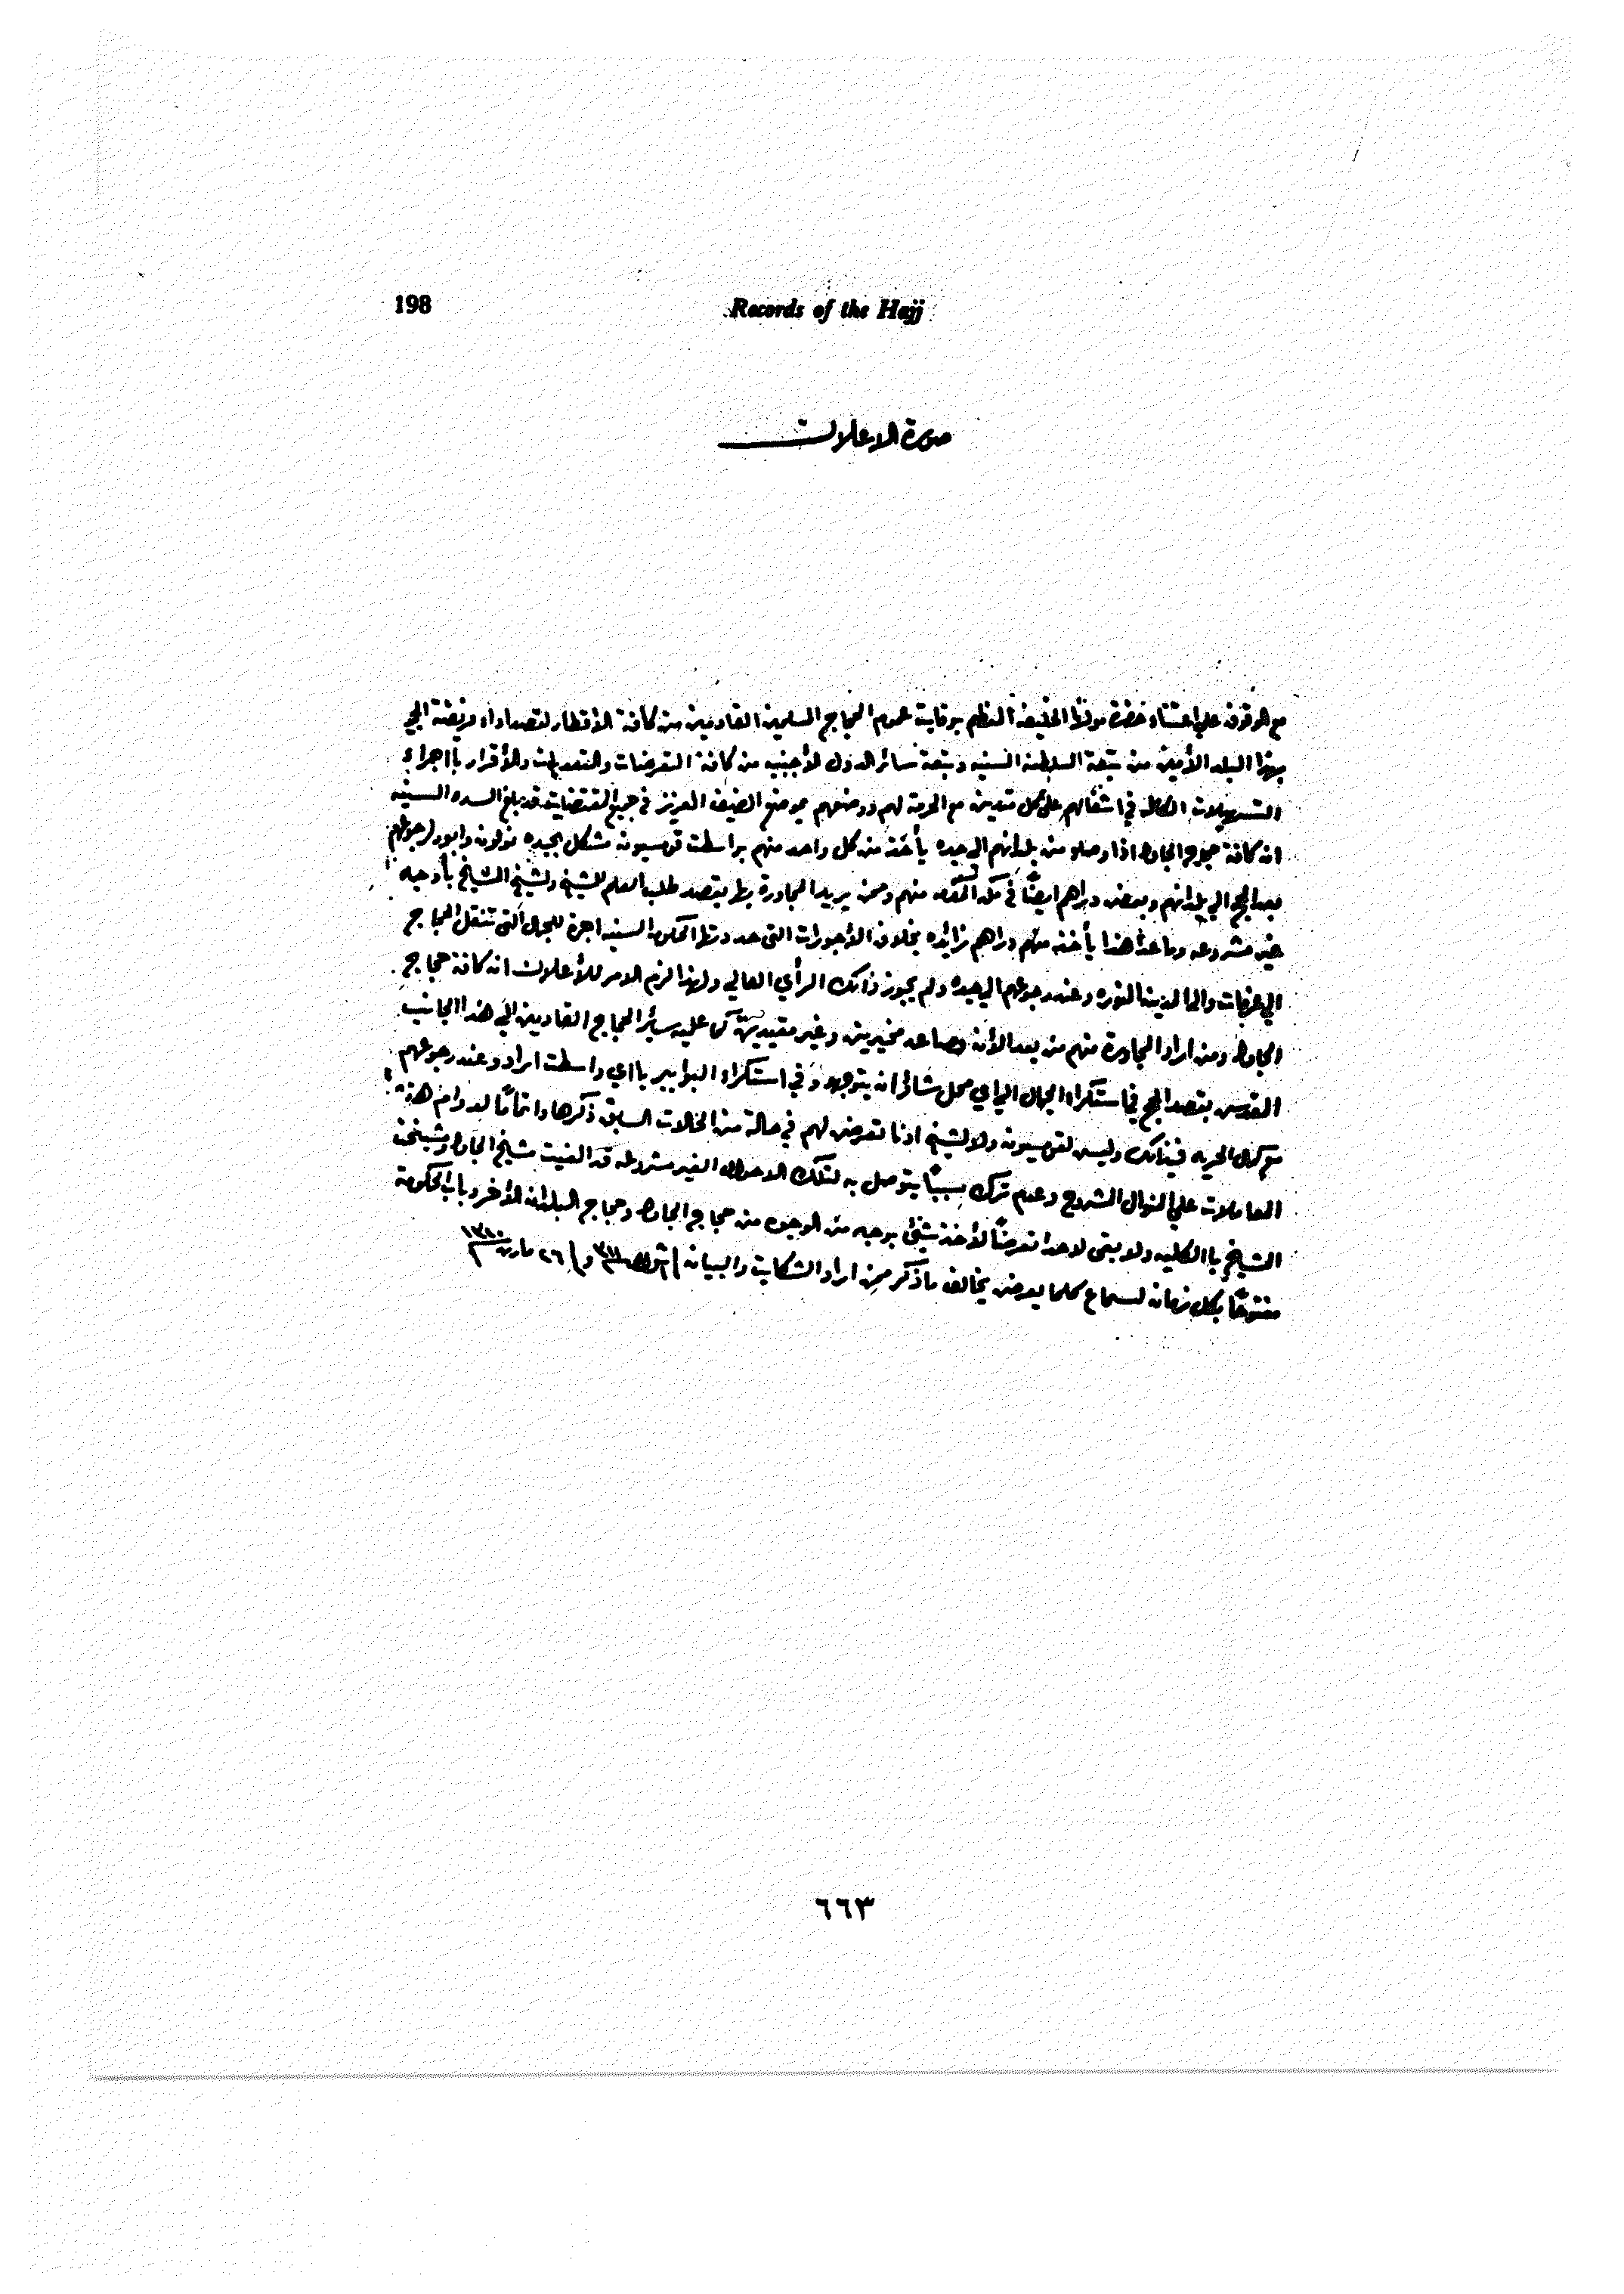 198 Records of the Hajj
صورة الاعلان
مع الوقوف علي اعتناء حضرة مولانا الخليفه المعظم بوقاية عموم الحجاج المسلمين القادمين من كافة الأقطار لقصد اداء فريضة الحج
بهذا البلد الأمين من تبعة السلطنه السنيه وتبعة سائر الدول الأجنبيه من كافة التعرضات والتعديات والأقرار باجراء
التسهيلات الكامله في اشغالهم على كل متعين مع الحرمة لهم ووضعهم موضع الضيف العزيز في جميع المقتضيات قد بلغ السده السنيه
ان كافة حجاج الجاوه اذا وصلو من بلدانهم الي جده يأخذ من كل واحد منهم بواسطت قومسيون مشكل بجده نولون وابور لرجوعهم
بعد الحج الي بلدانهم وبعض دراهم ايضاً في مكة المكرمه منهم وممن يريد المجاورة بها بقصد طلب العلم للشيخ ولشيخ المشايخ بأوجه
غير مشروعه وماعدا هذا يأخذ منهم دراهم زائده بخلاف الأجورات التي حددتها الحكومه السنيه اجرة للجمال التي تنقل الحجاج
الي عرفات والي المدينة المنوره وعند رجوعهم الي جده ولم يجوز ذالك الرأي العالي ولهذا لزم الامر للأعلان ان كافة حجاج
الجاوه ومن اراد المجاورة منهم من بعد الأن وصاعد مخيرين وغير مقيدين كما عليه سائر الحجاج القادمين الي هذا الجانب
المقدس بقصد الحج في استكراء الجمال الي اي محل شائو ان يتوجهو وفي استكراء البوابير بااي واسطت ارادو عند رجوعهم
مع كمال الحريه في ذالك وليس لقومسيون ولا لشيخ ادنا تعرض لهم في حالة من الحالات السابق ذكرها واتماماً لدوام هذه
المعاملات علي المنوال المشروح وعدم ترك سبباً يتوصل به لتلك الاحوال الغير مشروعه قد الغيت مشايخ الجاوه وشيخة
المشايخ باالكليه ولا بقى لاحد تعرضاً لأخذ شيئ بوجه من الوجوه من حجاج الجاوه وحجاج البلدان الأخر وباب الحكومة
مفتوحاً بكل زمان لسماع كلما يعرض يخالف ما ذكر ممن اراد الشكايت والبيان شوال و ٢٦ مارت
٦٦٣